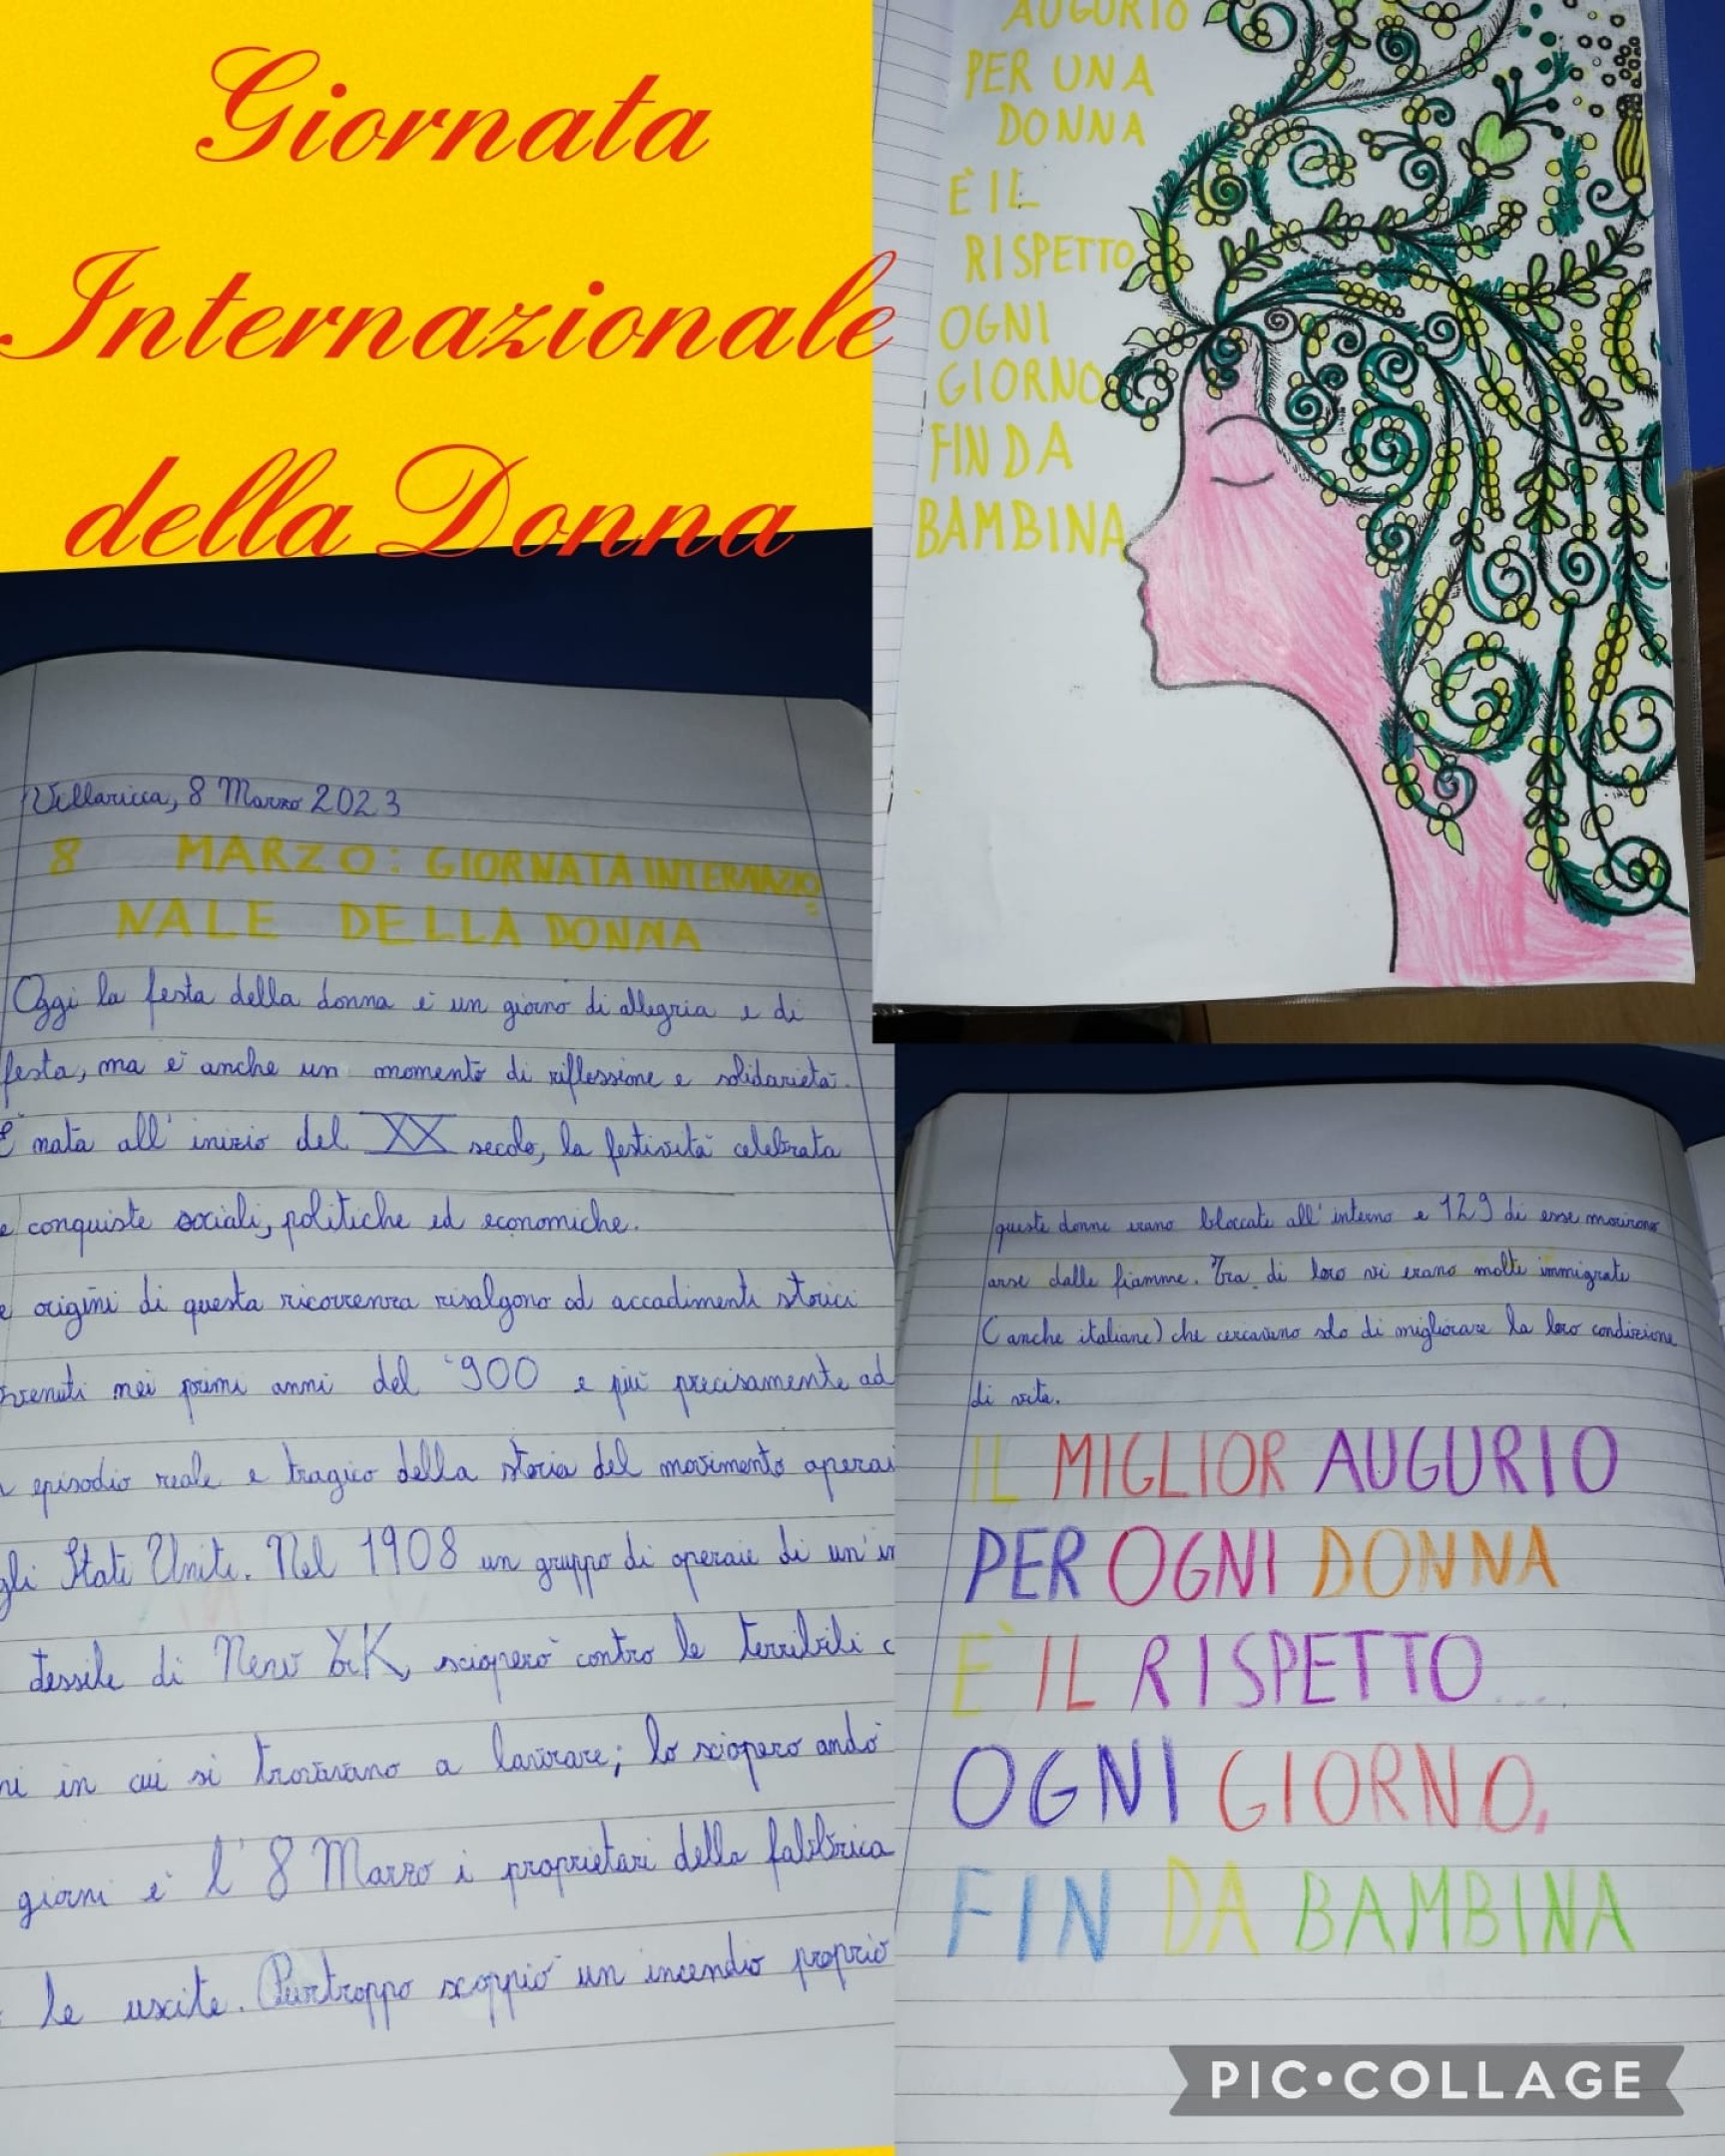 Giornata
Internazionale
della Donna
AUGURIO
PER UNA
DONNA
È IL
RISPETTO
OGNI
GIORNO
FIN DA
BAMBINA
Villaricca, 8 Marzo 2023
8 MARZO: GIORNATA INTERNAZIO
NALE DELLA DONNA
Oggi la festa della donna è un giorno di allegria e di
festa, ma è anche un momento di riflessione e solidarietà.
È nata all' inizio del XX secolo, la festività celebrata
e conquiste sociali, politiche ed economiche.
e origini di questa ricorrenza risalgono ad accadimenti storici
vvenuti nei primi anni del '900 e più precisamente ad
episodio reale e tragico della storia del movimento operai
gli Stati Uniti. Nel 1908 un gruppo di operaie di un'in
tessile di New York, scioperò contro le terribili c
ni in cui si trovavano a lavorare; lo sciopero andò
giorni e l' 8 Marzo i proprietari della fabbrica
le uscite. Purtroppo scoppiò un incendio proprio
queste donne erano bloccate all' interno e 129 di esse morirono
arse dalle fiamme. Tra di loro vi erano molte immigrate
(anche italiane) che cercavano solo di migliorare la loro condizione
di vita.
IL MIGLIOR AUGURIO
PER OGNI DONNA
È IL RISPETTO....
OGNI GIORNO,
FIN DA BAMBINA
PIC•COLLAGE